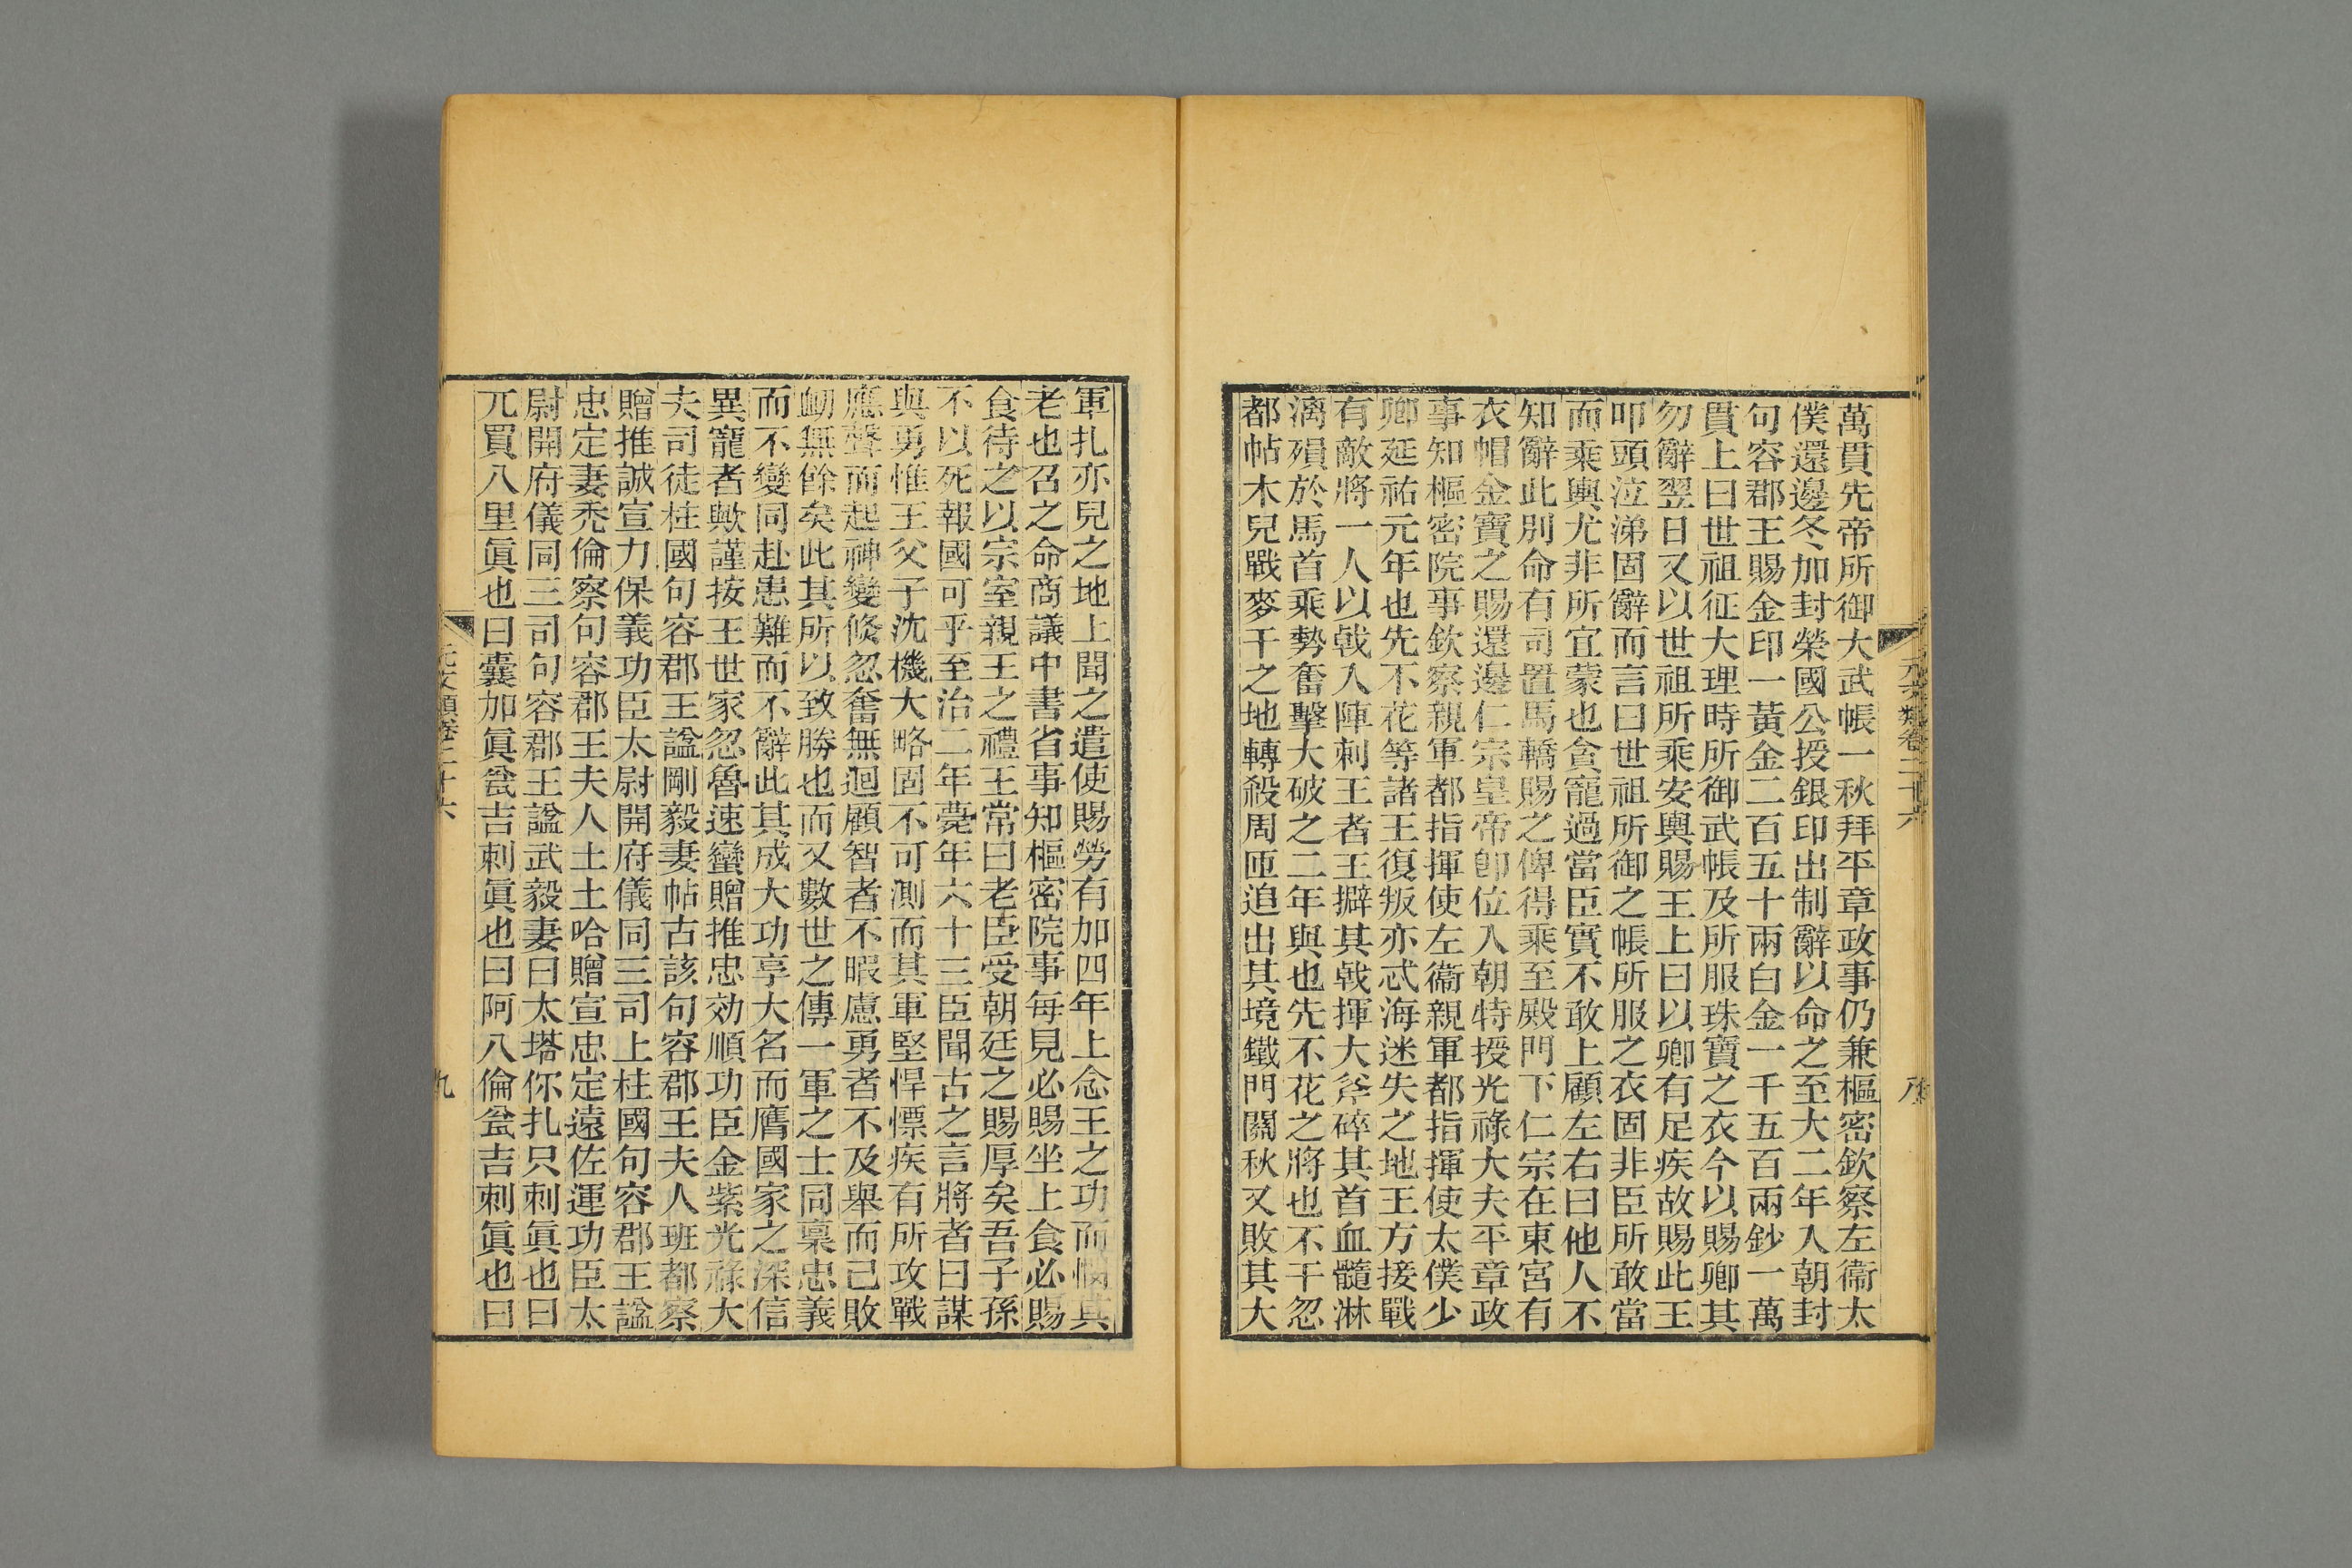 元文類卷二十六
萬貫先帝所御大武帳一秋拜平章政事仍兼樞密欽察左衞太
僕還邊冬加封榮國公授銀印出制辭以命之至大二年入朝封
句容郡王賜金印一黃金二百五十兩白金一千五百兩鈔一萬
貫上曰世祖征大理時所御武帳及所服珠寶之衣今以賜卿其
勿辭翌日又以世祖所乘安輿賜王上曰以卿有足疾故賜此王
叩頭泣涕固辭而言曰世祖所御之帳所服之衣固非臣所敢當
而乘輿尤非所宜蒙也貪寵過當臣實不敢上顧左右曰他人不
知辭此別命有司置馬轎賜之俾得乘至殿門下仁宗在東宮有
衣帽金寶之賜還邊仁宗皇帝卽位入朝特授光祿大夫平章政
事知樞密院事欽察親軍都指揮使左衞親軍都指揮使太僕少
卿延祐元年也先不花等諸王復叛亦忒海迷失之地王方接戰
有敵將一人以戟入陣刺王者王擗其戟揮大斧碎其首血髓淋
漓殞於馬首乘勢奮擊大破之二年與也先不花之將也不干忽
都帖木兒戰麥干之地轉殺周匝追出其境鐵門關秋又敗其大
軍扎亦兒之地上聞之遣使賜勞有加四年上念王之功而憫其
老也召之命商議中書省事知樞密院事每見必賜坐上食必賜
食待之以宗室親王之禮王常曰老臣受朝廷之賜厚矣吾子孫
不以死報國可乎至治二年薨年六十三臣聞古之言將者曰謀
與勇惟王父子沈機大略固不可測而其軍堅悍慓疾有所攻戰
應聲而起神變倏忽奮無迴顧智者不暇慮勇者不及舉而已敗
衂無餘矣此其所以致勝也而又數世之傳一軍之士同稟忠義
而不變同赴患難而不辭此其成大功享大名而膺國家之深信
異寵者歟謹按王世家忽魯速蠻贈推忠効順功臣金紫光祿大
夫司徒柱國句容郡王諡剛毅妻帖古該句容郡王夫人班都察
贈推誠宣力保義功臣太尉開府儀同三司上柱國句容郡王諡
忠定妻禿倫察句容郡王夫人土土哈贈宣忠定遠佐運功臣太
尉開府儀同三司句容郡王諡武毅妻曰太塔你扎只刺眞也曰
兀買八里眞也曰囊加眞瓮吉刺眞也曰阿八倫瓮吉刺眞也曰
元文類卷二十六
九